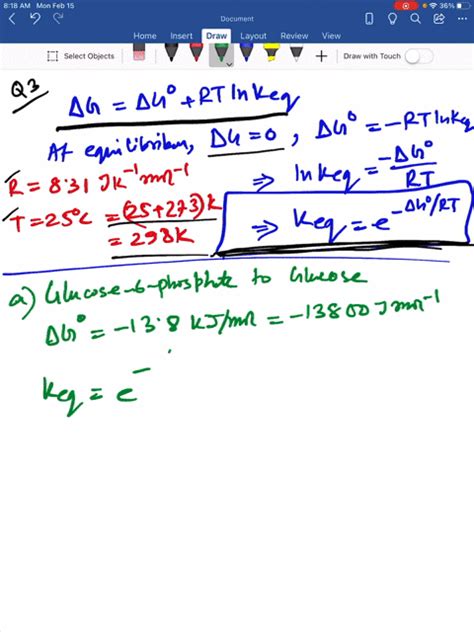 8:18 AM Mon Feb 15
36%
Document
Home Insert Draw Layout Review View
Select Objects
Draw with Touch
Q3
ΔG = ΔG° + RT ln Keq
At equilibrium, ΔG = 0, ΔG° = -RT ln Keq
R = 8.31 JK⁻¹mol⁻¹ ⇒ ln Keq = -ΔG°/RT
T = 25°C = (25+273)K
= 298K ⇒ Keq = e^(-ΔG°/RT)
a) Glucose-6-phosphate to Glucose
ΔG° = -13.8 KJ/mol = -13800 J mol⁻¹
Keq = e⁻